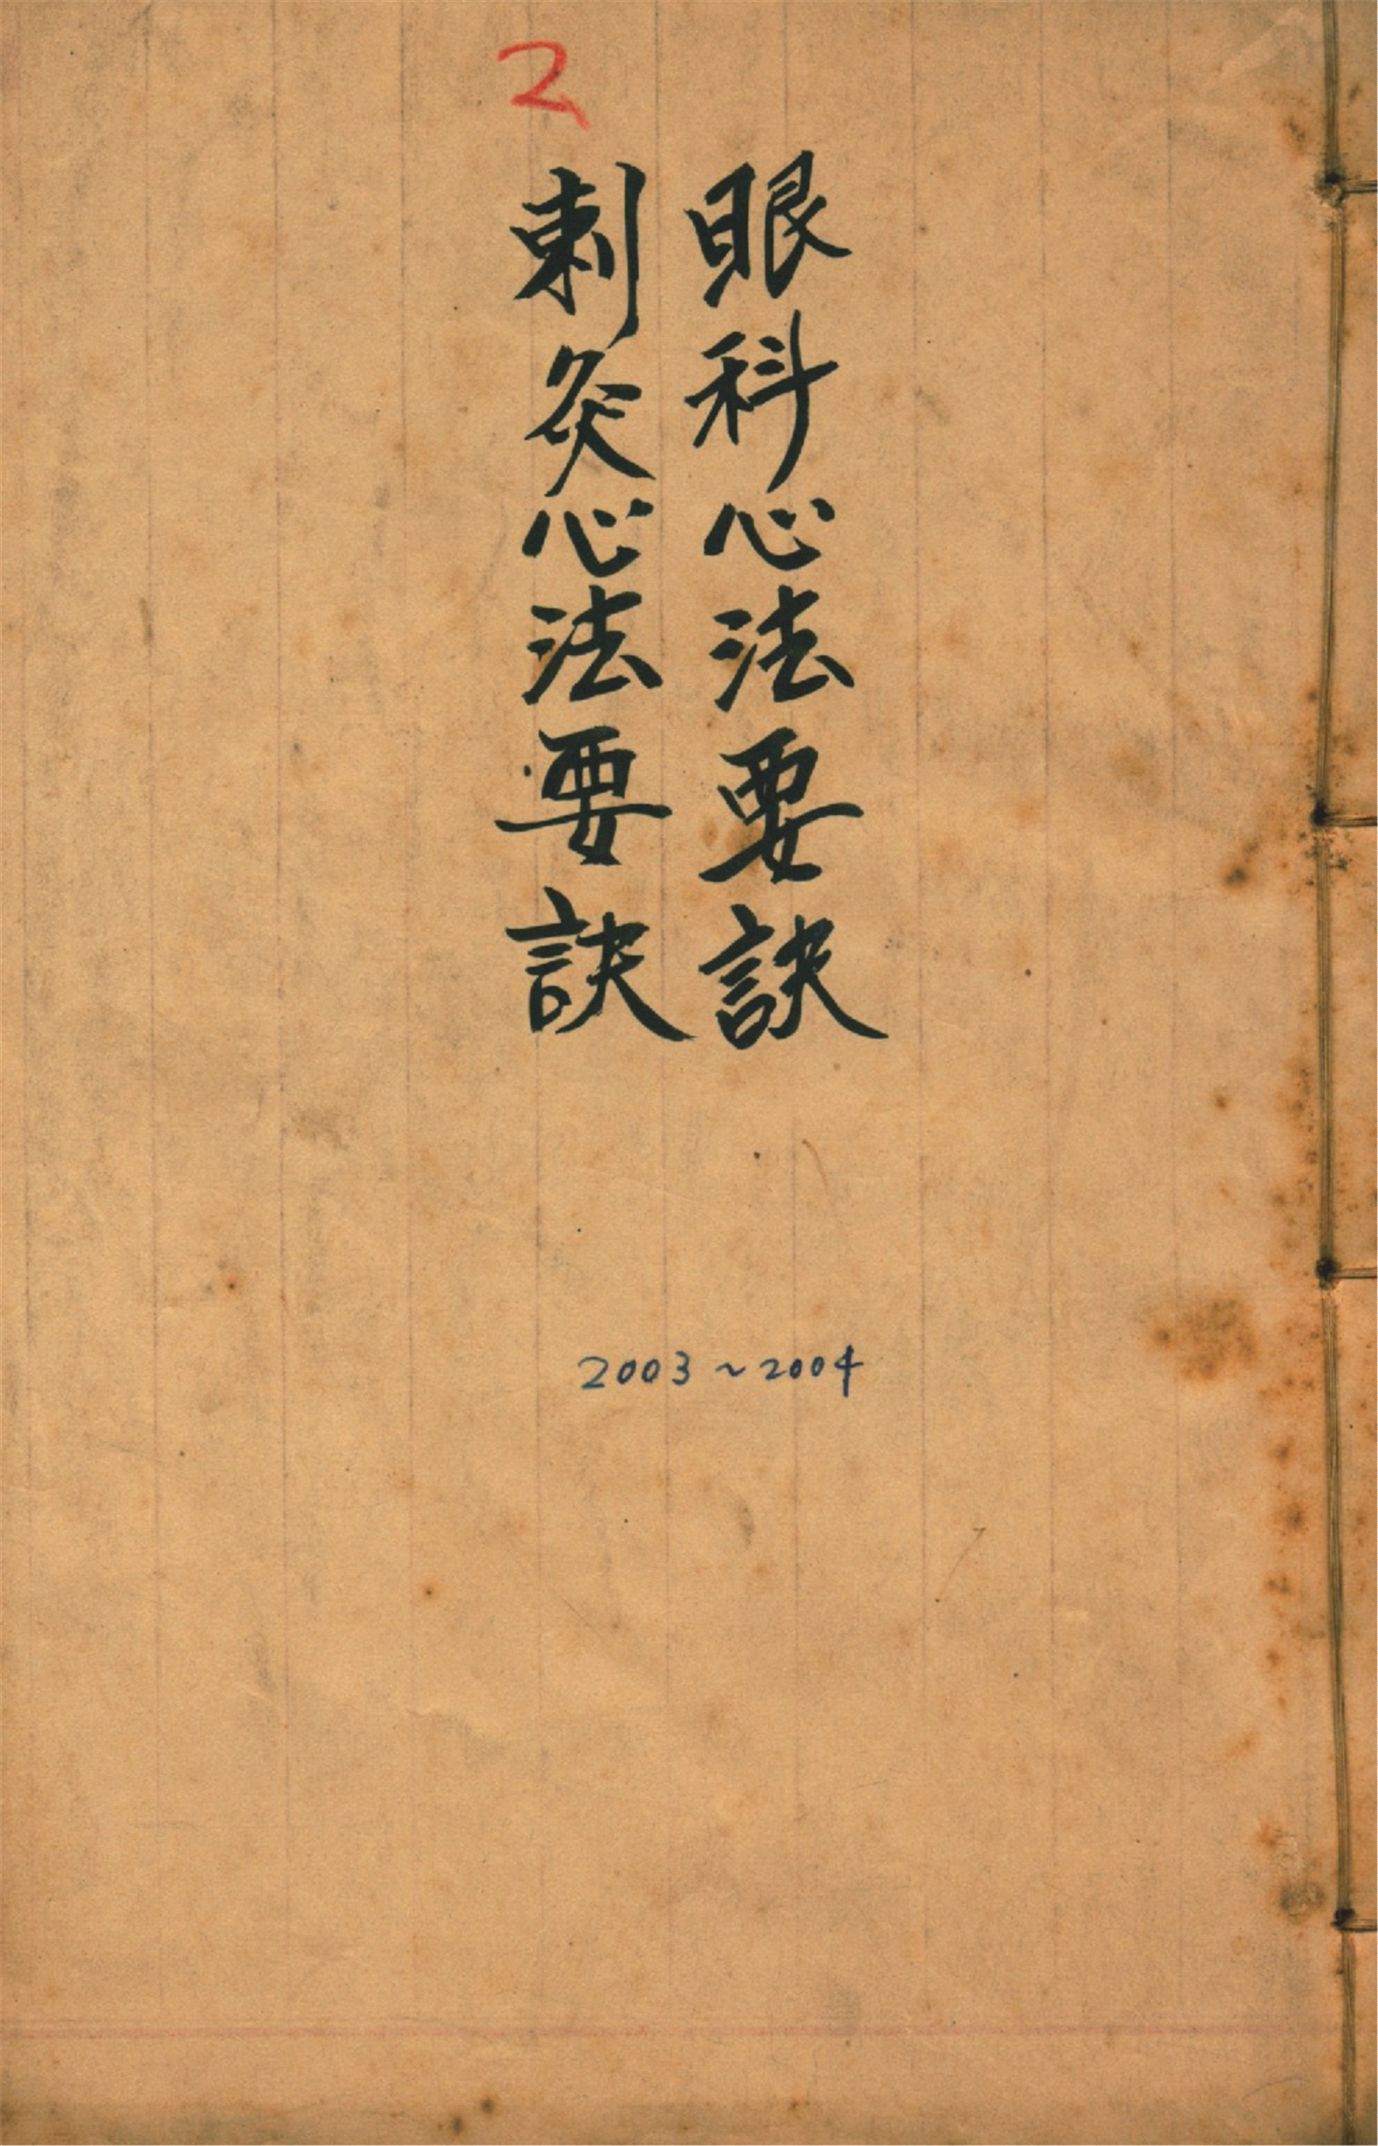 2
眼科心法要訣
刺灸心法要訣
2003~2004